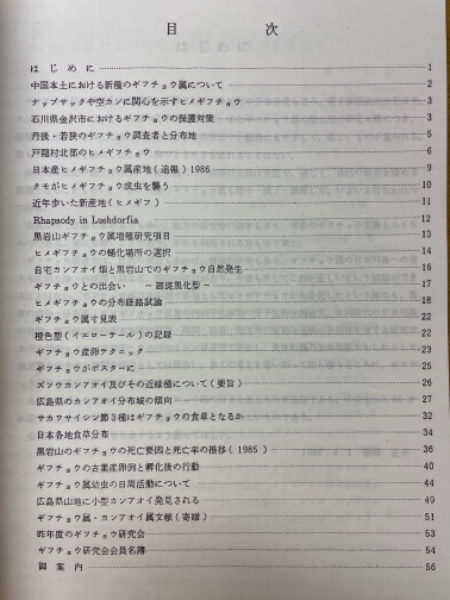 目 次
はじめに 1
中国本土における新種のギフチョウ属について 2
ナップサックや空カンに関心を示すヒメギフチョウ 3
石川県金沢市におけるギフチョウの保護対策 3
丹後・若狭のギフチョウ調査者と分布地 5
戸隠村北部のヒメギフチョウ 6
日本産ヒメギフチョウ属産地(追報)1986 9
クモがヒメギフチョウ成虫を襲う 10
近年歩いた新産地(ヒメギフ) 11
Rhapsody in Luehdorfia 12
黒岩山ギフチョウ属増殖研究項目 13
ヒメギフチョウの蛹化場所の選択 14
自宅カンアオイ畑と黒岩山でのギフチョウ自然発生 16
ギフチョウとの出会い -翅斑黒化型- 17
ヒメギフチョウの分布経路試論 18
ギフチョウ属寸見表 22
橙色型(イエローテール)の記録 22
ギフチョウ産卵テクニック 23
ギフチョウがポスターに 25
ズソウカンアオイ及びその近縁種について(要旨) 26
広島県のカンアオイ分布域の傾向 27
サカワサイシン第3種はギフチョウの食草となるか 32
日本各地食草分布 34
黒岩山のギフチョウの死亡要因と死亡率の推移(1985) 36
ギフチョウの古葉産卵例と孵化後の行動 40
ギフチョウ属幼虫の日周活動について 44
広島県山地に小型カンアオイ発見される 49
ギフチョウ属・カンアオイ属文献(寄贈) 51
昨年度のギフチョウ研究会 53
ギフチョウ研究会会員名簿 54
御案内 56